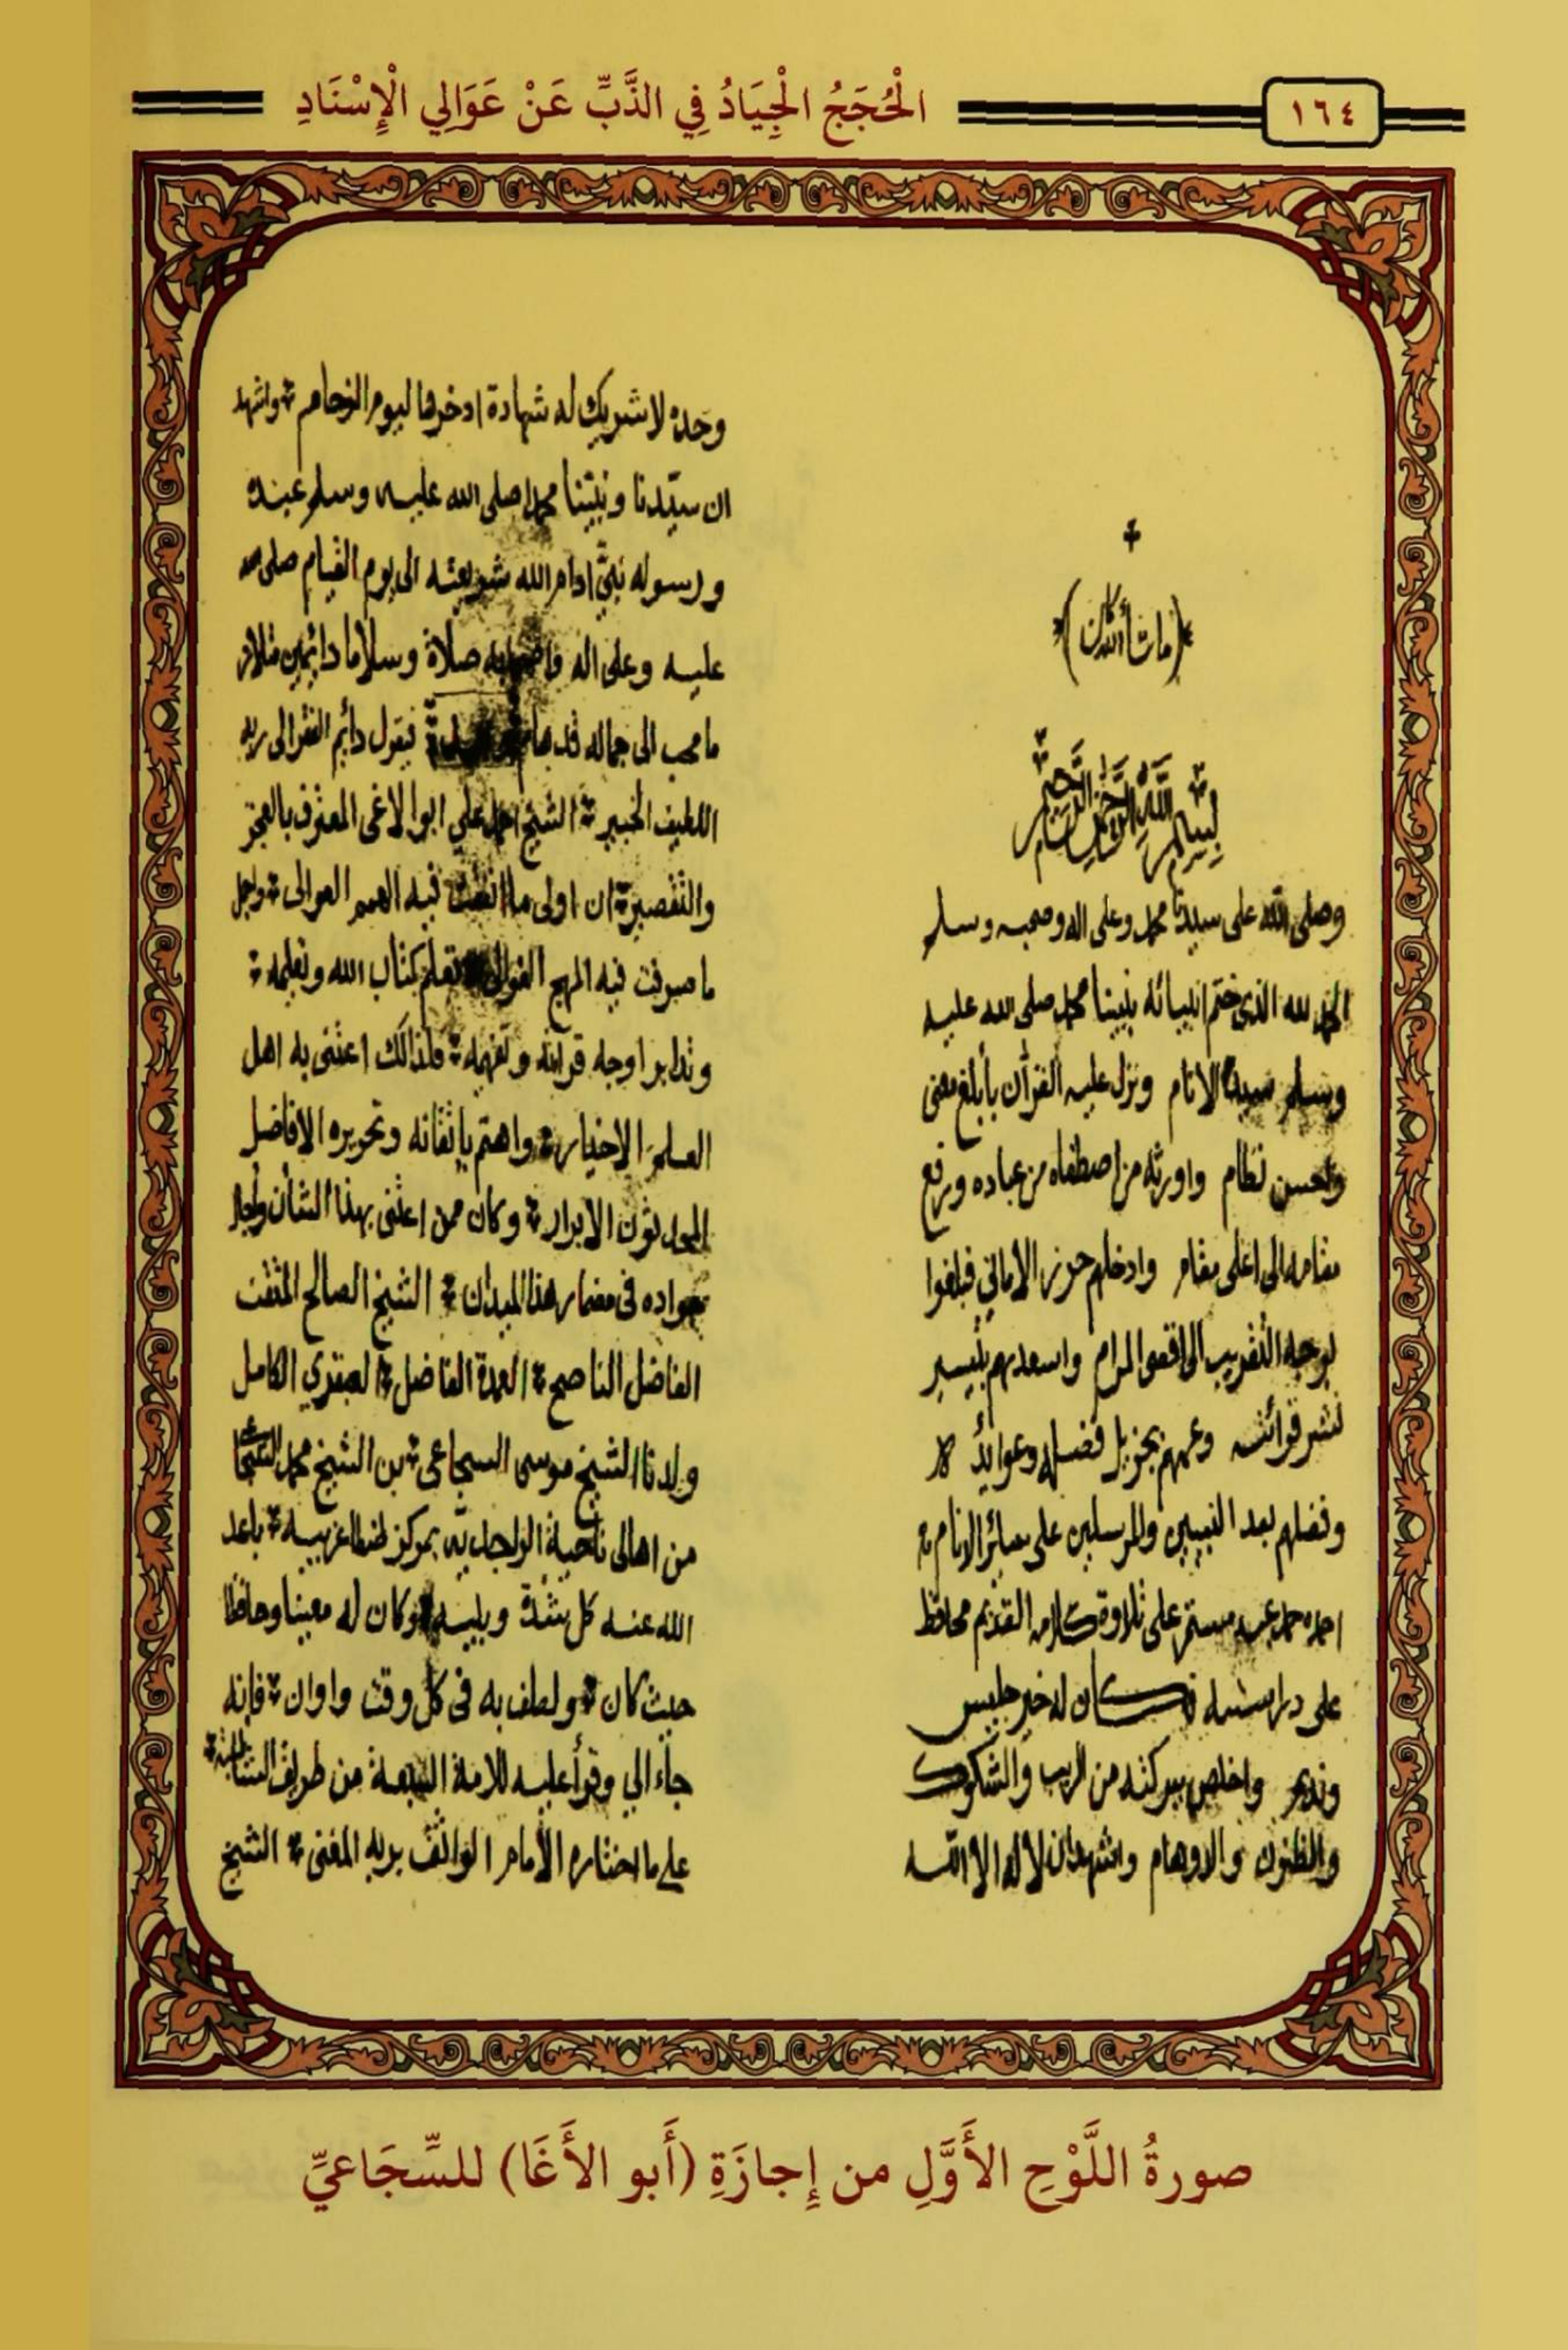 ١٦٤
الْحُجَجُ الْجِيَادُ فِي الذَّبِّ عَنْ عَوَالِي الْإِسْنَادِ
(ما شاء الله كان)
بسم الله الرحمن الرحيم
وصلى الله على سيدنا محمد وعلى اله وصحبه وسلم
الحمد لله الذى ختم انبيائه بنبينا محمد صلى الله عليه
وسلم سيد الانام ونزل عليه القرآن بأبلغ معنى
واحسن نظام واورثه من اصطفاه من عباده ورفع
مقامه الى اعلى مقام وادخلهم حرز الامانى فبلغوا
بوجه التقريب الى اقصى المرام واسعدهم بتيسير
نشر قوائته وعمهم بجزيل فضله وعوايده
وفضلهم بعد النبيين والمرسلين على سائر الانام
احمده حمد عبد مستمر على تلاوة كلامه القديم محافظ
على دراسته فكان له خير جليس
ونديم واخلص ببركته من الريب والشكوك
والظنون والاوهام واشهد ان لا اله الا الله
وحده لا شريك له شهادة ادخرها ليوم الزحام واشهد
ان سيّدنا ونبيّنا محمدا صلى الله عليه وسلم عبده
ورسوله نبيّ ادام الله شريعته الى يوم القيام صلى الله
عليه وعلى اله واصحابه صلاة وسلاما دائمين
ما محب الى جماله قد هام فيقول دائم الفقر الى ربه
اللطيف الخبير الشيخ علي ابوا الاغى المعترف بالعجز
والتقصير ان اولى ما فيه الهمم العوالى واجل
ما صرفت فيه المهج الغوالى تعلم كتاب الله وتعليمه
وتدابر اوجه قرائته وتفهيمه فلذالك اعتنى به اهل
العلم الاخيار واهتم بإتقانه وتحريره الافاضل
المجدثون الابرار وكان ممن اعتنى بهذا الشأن وأجاز
بجواده فى مضمار هذا الميدان الشيخ الصالح المتقن
الفاضل الناصح العمدة الفاضل العبقري الكامل
ولدنا الشيخ موسى السجاعى بن الشيخ محمد
من اهالى ناحية بمركز طنطا غربيه باعد
الله عنه كل شدة وبليه وكان له معينا وحافظا
حيث كان ولطف به فى كل وقت واوان فإنه
جاء الي وقرأ عليه للائمة السبعة من طريق الشاطبية
على ما اختاره الأمام الواثق بربه المغنى الشيخ
صورةُ اللَّوْحِ الأَوَّلِ من إِجازَةِ (أَبو الأَغَا) للسِّجَاعيِّ